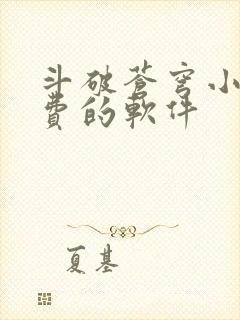 斗破苍穹小
费的软件
夏基